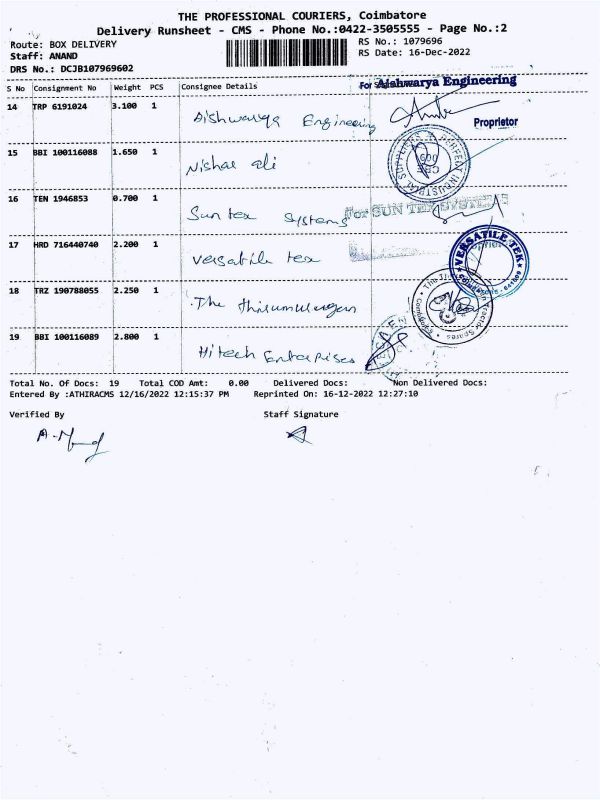 THE PROFESSIONAL COURIERS, Coimbatore
Delivery Runsheet - CMS - Phone No.:0422-3505555 - Page No.:2
Route: BOX DELIVERY
RS No.: 1079696
Staff: ANAND
RS Date: 16-Dec-2022
DRS No.: DCJB107969602
S No Consignment No Weight PCS Consignee Details
For Aishwarya Engineering
14 TRP 6191024 3.100 1 Aishwarya Engineering
Proprietor
15 BBI 100116088 1.650 1 Nishar ali
16 TEN 1946853 0.700 1 Sun tex Systems
For SUN TEX SYSTEMS
17 HRD 716440740 2.200 1 Versatile tex
VERSATILE-TEK
18 TRZ 190788055 2.250 1 The thirumurugan
19 BBI 100116089 2.800 1 Hitech Enterprises
Total No. Of Docs: 19 Total COD Amt: 0.00 Delivered Docs: Non Delivered Docs:
Entered By :ATHIRACMS 12/16/2022 12:15:37 PM Reprinted On: 16-12-2022 12:27:10
Verified By Staff Signature